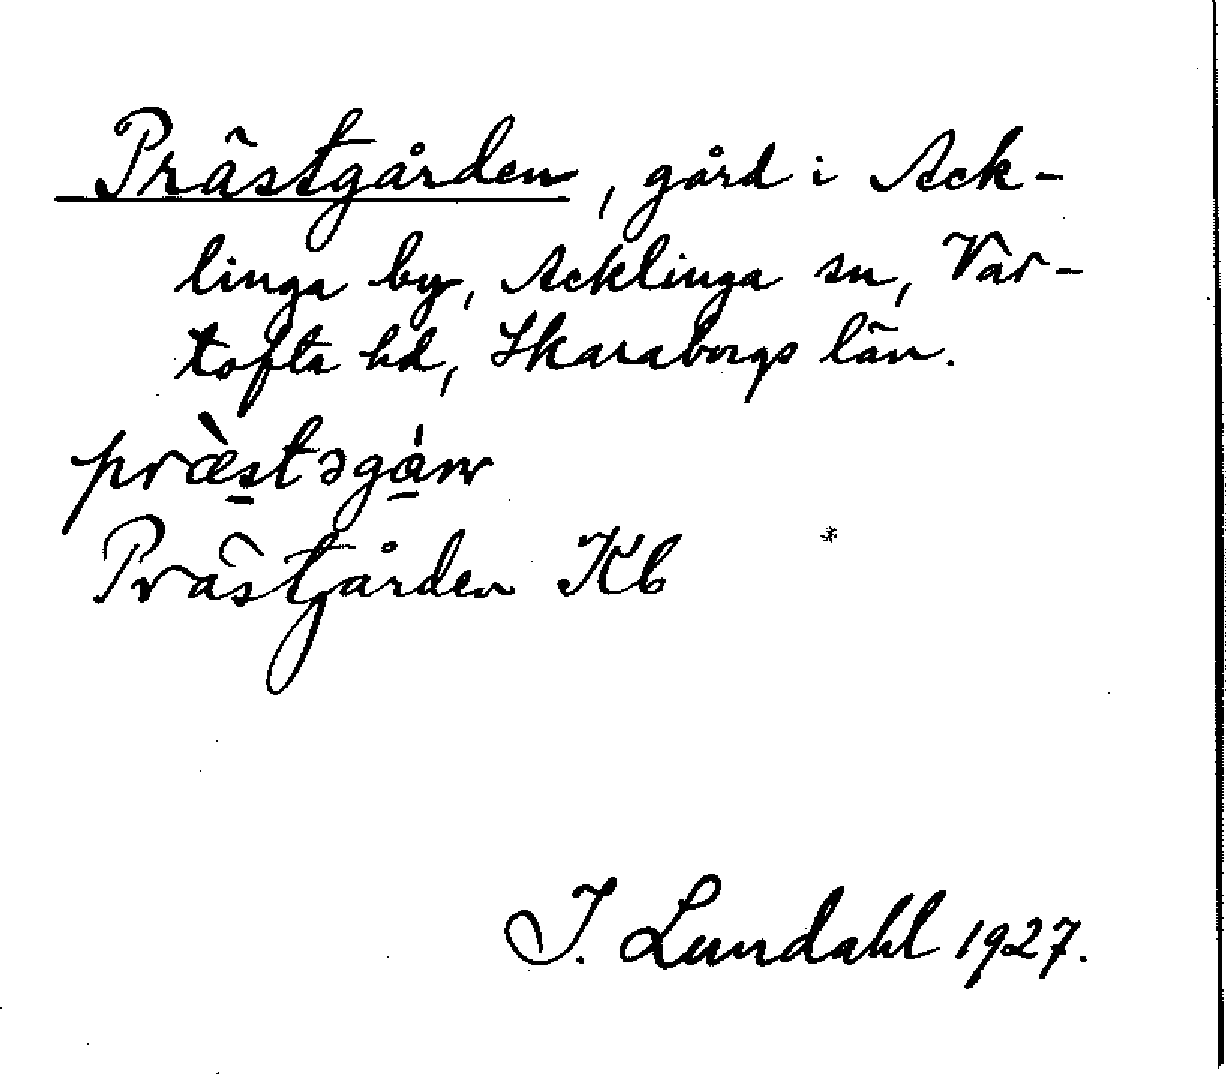 Prästgården, gård i Ack-
linga by, Acklinga sn, Var-
tofta hd, Skaraborgs län.
præ̀s̠təgá̠rn
Prästgården Kb
I. Lundahl 1927.